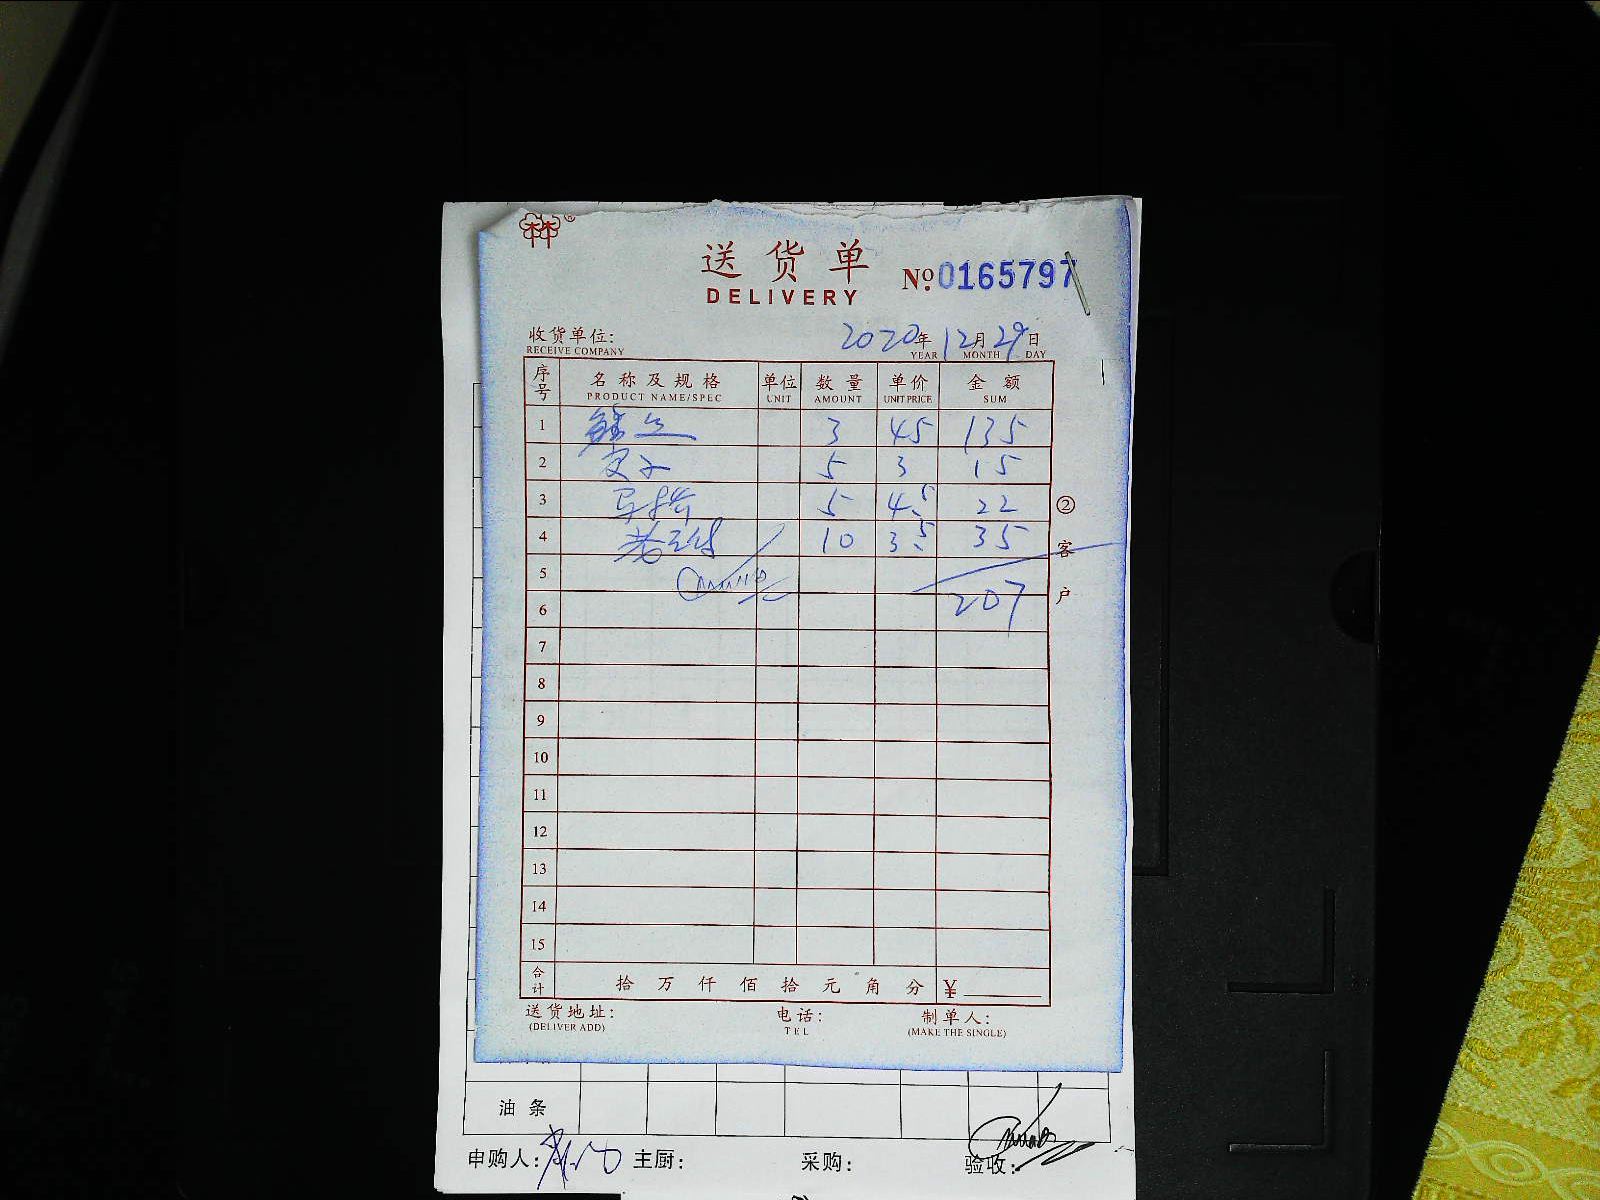 送货单
DELIVERY
No.0165797
收货单位: 2020年12月29日
RECEIVE COMPANY YEAR MONTH DAY
序号 名称及规格 单位 数量 单价 金额
PRODUCT NAME/SPEC UNIT AMOUNT UNIT PRICE SUM
1 3 45 135
2 5 3 15
3 5 4.5 22
4 10 3.5 35
5
6 207
7
8
9
10
11
12
13
14
15
合计 拾万仟佰拾元角分 ¥
②客户
送货地址: 电话: 制单人:
(DELIVER ADD) TEL (MAKE THE SINGLE)
油条
申购人: 主厨: 采购: 验收: